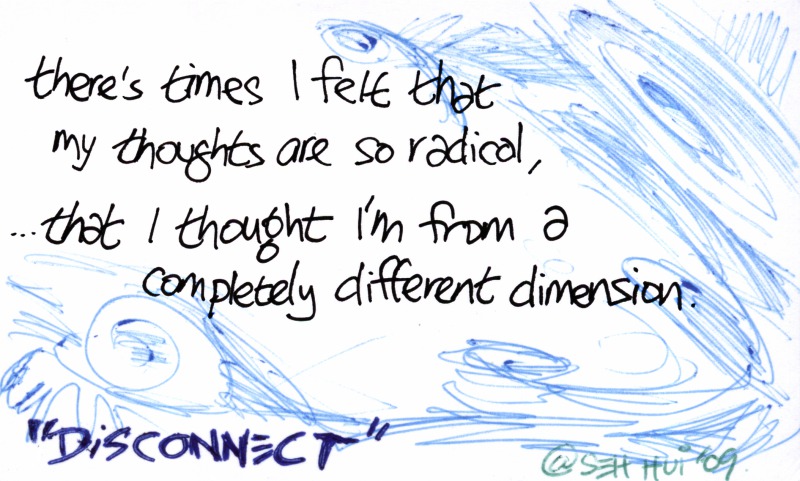 there's times I felt that
my thoughts are so radical,
...that I thought I'm from a
completely different dimension.
"DiSCONNECT"
@SEH HUi '09